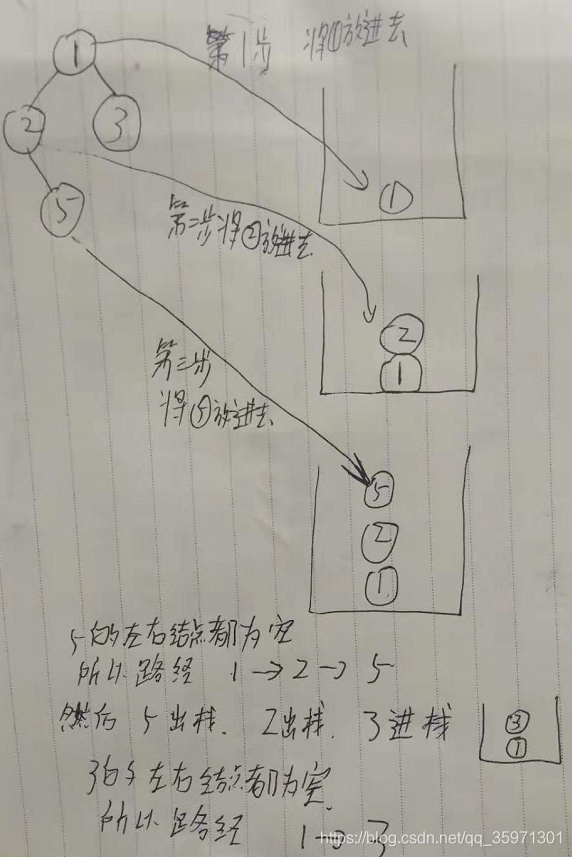 第1步 将①放进去
①
②
③
⑤
①
第二步将②放进去
②
①
第三步
将⑤放进去
⑤
②
①
5的左右结点都为空
所以路经 1→2→5
然后 5出栈. 2出栈. 3进栈
③
①
3的左右结点都为空.
所以路经 1→3
https://blog.csdn.net/qq_35971301